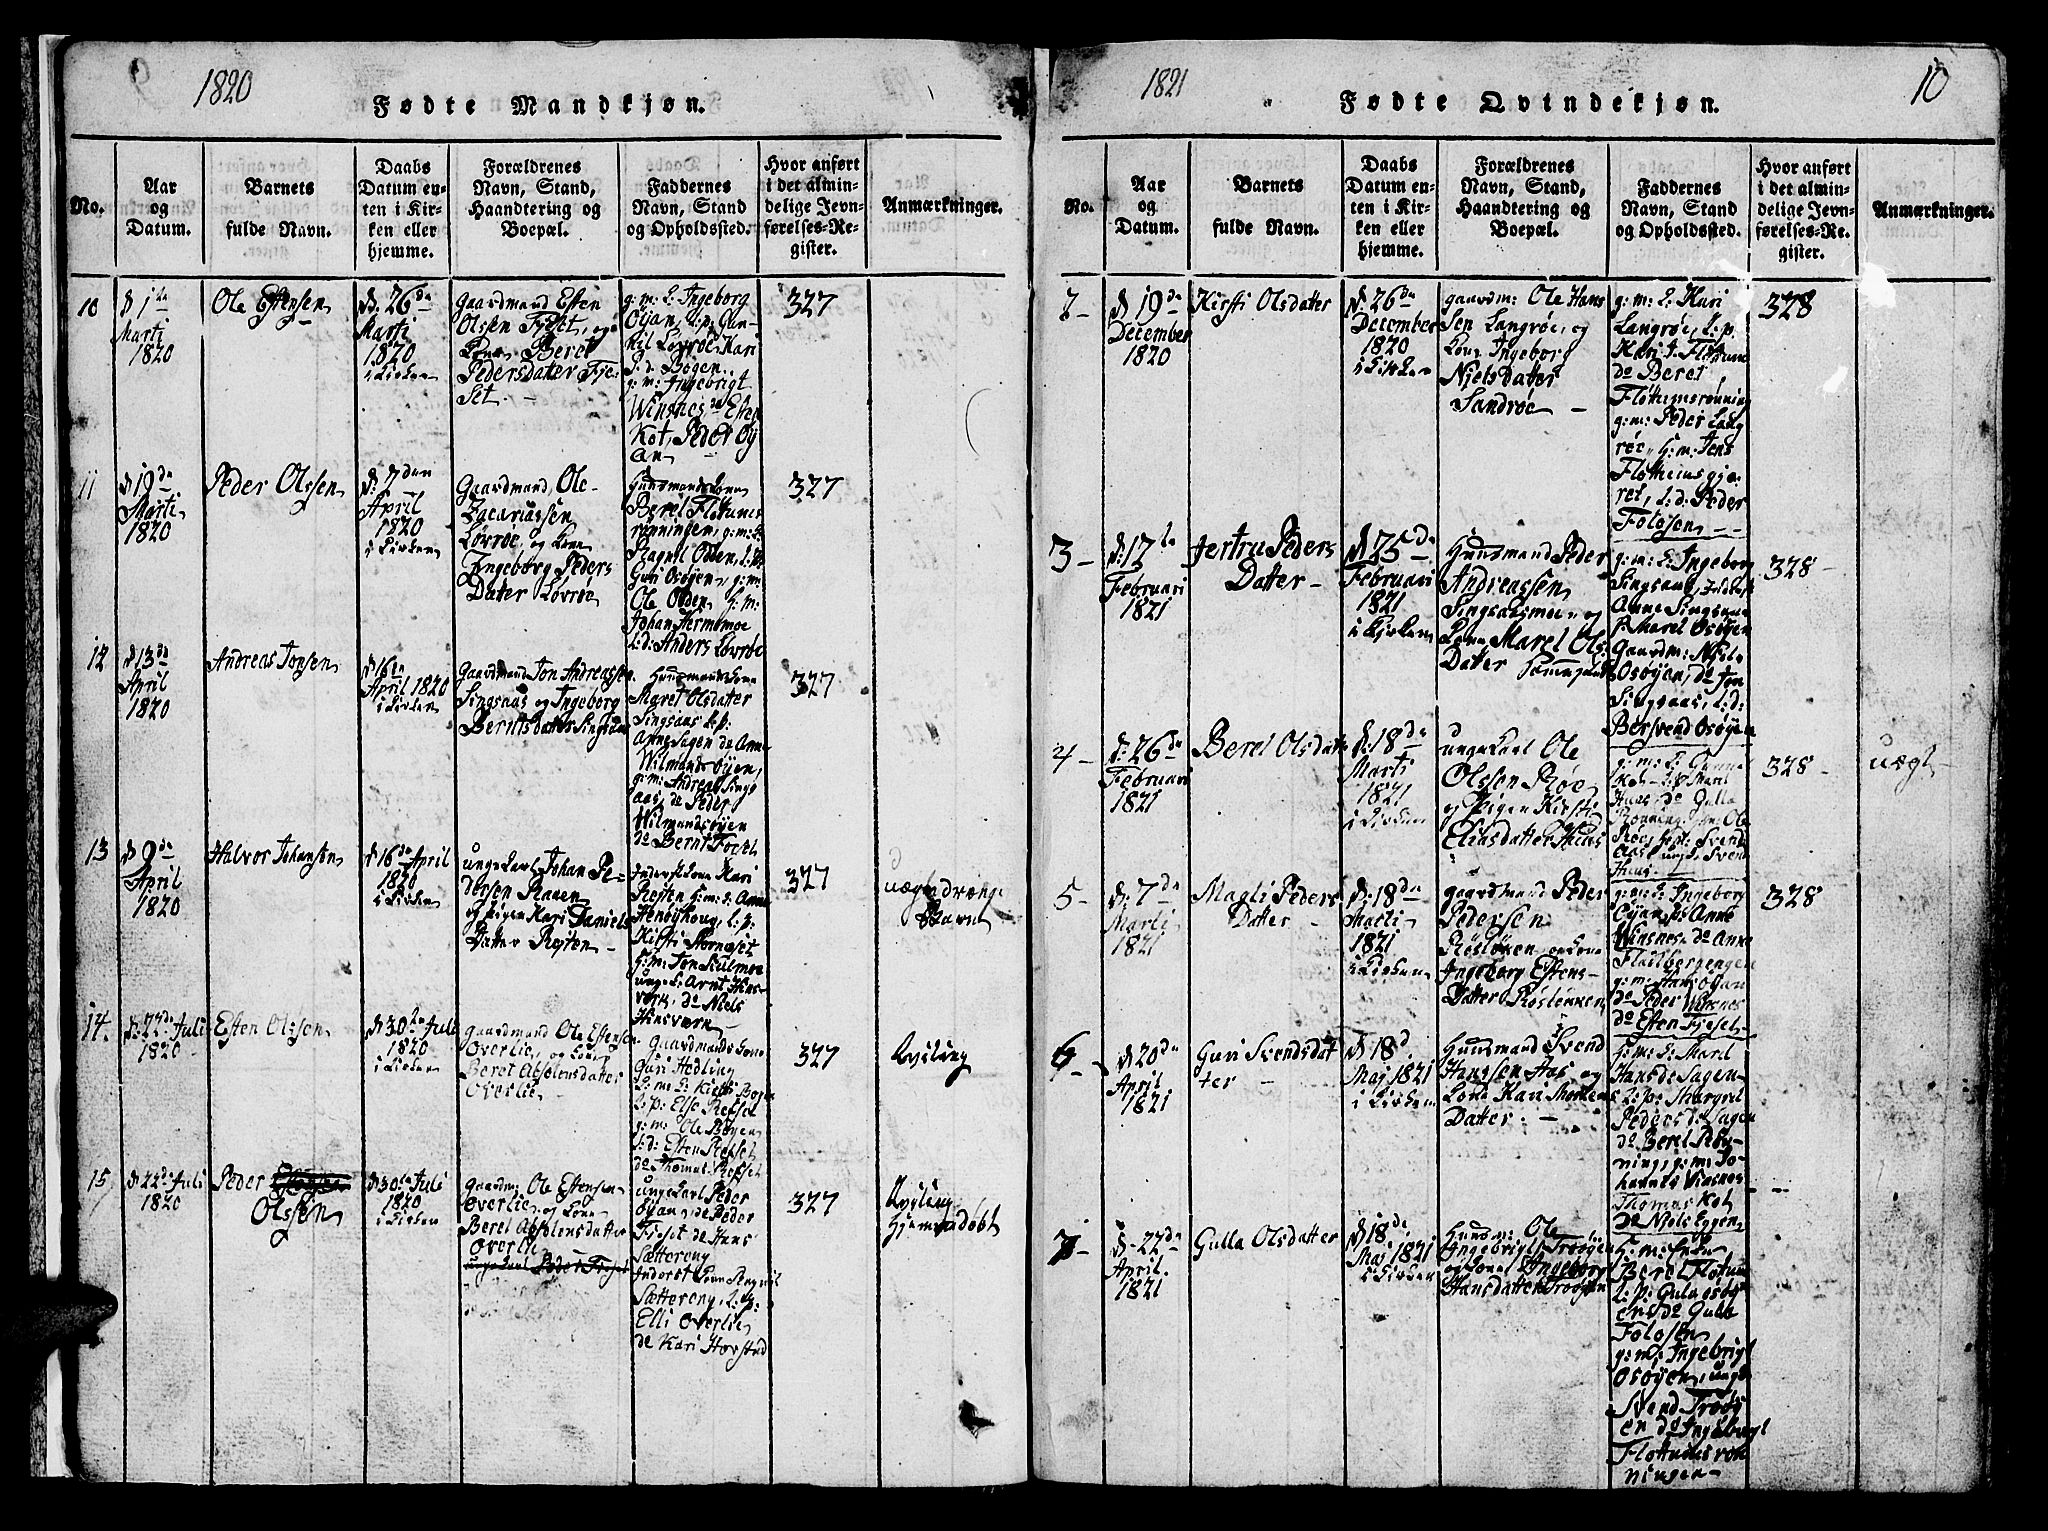 1820
Fødte Mandkjøn.
No.
Aar
og
Datum.
Barnets
fulde Navn.
Daabs
Datum en-
ten i Kir-
ken eller
hjemme.
Forældrenes
Navn, Stand,
Haandtering og
Boepæl.
Faddernes
Navn, Stand
og Opholdssted.
Hvor anført
i det almin-
delige Jevn-
førelses-Re-
gister.
Anmærkninger.
10
d 1de
Marti
1820
Ole Estensen
d. 26de
Marti
1820
i Kirken
Gaardmand Esten
Olssen Fjeset, og
Kone Beret
Pedersdatter Fje-
set.
g: m: K. Ingeborg
Øijan, l: p: Gun-
hil Løvrøe, Kari
J. d. Bogen.
g: m: Ingebrigt
Winsnes, do Esten
Kot, Peder Øy
an
327
11
d. 19de
Marti
1820
Peder Olssen
d. 7den
April
1820
i Kirken
Gaardmand, Ole
Zacariassen
Løvrøe, og Kone
Ingeborg Peders
Datter Løvrøe
Huusmandskone
Beret Flotums
rønningen, g: m: K.
Ragnil Odden, l: p:
Guri Osøyen, g: m:
Ole Odden H: m:
Johan Hermomoe
l: d: Anders Løvrøe
327
12
d. 13de
April
1820
Andreas Jonsen
d. 16de
April 1820
i Kirken
Gaardmand Jon Andreassen
Singsaas og Ingeborg
Berntsdatter Singsaas
Huusmandskone
Maret Olsdatter
Singsaas l: p:
Anne Sagen do Anne
Wilmandsøyen,
g: m: Andreas Sings
aas, do Peder
Wilmandsøyen
do Bernt Foset
327
13
d. 9de
April
1820
Halvor Johansen
d. 16de April
1820
i Kirken
ungekarl Johan Pe-
dersen Raaen
og pigen Kari Daniels
Datter Resten
Inderstkone Kari
Resten H: m: K. Anne
Hendskoug, l: p:
Kirsti Storneset
H: m: Jon Kulmoe
unge K. Arnt Hins-
værk, do Niels
Hinsværk
327
uægte drænge
Barn
14.
d: 22de Juli
1820
Esten Olssen
d. 30te Juli
1820
i Kirken
Gaardmand Ole Estensen
Overlie, og Kone
Beret Absolonsdatter
Overlie
Gaardmandskone
Guri Hedling
g: m: K. Kirsti Bogen
l: p: Else Refset
g: m: Ole Bøyen
l: d: Esten Refset
do Thomas Refset
327
Tviling
15
d 22de Juli
1820
Peder
Olssen
d. 30te Juli
1820
i Kirken
Gaardm: Ole Estensen
Overlie, og Kone
Beret Absolonsdatter
Overlie
ungekarl Peder Fjeset
ungekarl Peder
Øyan, do Peder
Fjeset do Hans
Sættereng
Inderst Kone Ragnil
Sættereng, l: p:
Elli Overlie
do Kari Horstad
327
Tviling
Hjemmedøbt
1821
Fødte Qvindekjøn.
10
No.
Aar
og
Datum.
Barnets
fulde Navn.
Daabs
Datum en-
ten i Kir-
ken eller
hjemme.
Forældrenes
Navn, Stand,
Haandtering og
Boepæl.
Faddernes
Navn, Stand
og Opholdssted.
Hvor anført
i det almin-
delige Jevn-
førelses-Re-
gister.
Anmærkninger.
2
d. 19de
December
1820
Kirsti Olsdatter
d. 26de
December
1820
i Kirken
gaardm: Ole Hans
sen Langrøe, og
Kone Ingeborg
Nielsdatter
Sandrøe
g: m: K. Kari
Langrøe, l: p.
Kari J. Flotum
do Beret
Flottumsrønning
g: m: Peder Lang
røe, H: m: Jens
Flottumsgjæ
ret, l: d: Peder
Folosen
328
3
d: 17de
Februari
1821
Jertru Peders
Datter
d. 25de
Februari
1821
i Kirken
Huusmand Peder
Andreassen
Singsaasmoe og
Kone Maret Ols
Datter
g: m: K. Ingeborg
Singsaas,
Anne Singsaas
P. Maret Osøyen
Gaardm: Niels
Osøyen, do Jon
Singsaas, l: d:
Bersvend Osøyen
328
4
d: 26de
Februari
1821
Beret Olsdatter
d: 18de
Marti
1821
i Kirken
ungekarl Ole
Olssen Røe
og Pigen Kirsti
Eliasdatter Huus
Kot
Huus do Gulla
Rønning, Ole
Røe, Svend
Aas ungk. Svend
Huus
328
uægte
5
d: 7de
Marti
1821
Magli Peders
Datter
d: 18de
Marti
1821
i Kirken
gaardmand Peder
Pedersen
Røsløkken, og Kone
Ingeborg Estens
Datter Røsløkken
g: m: K. Ingeborg
Øijan, p: Anne
Winsnes, do Anne
Fladbergengen
g: m: Hans Ogan
do Peder Winsnes
do Esten Fjeset
328
6
d. 20de
April
1821
Guri Svendsdat
ter
d. 18d.
Maj 1821
i Kirken
Huusmand Svend
Hanssen Aas og
Kone Kari Mortens
Datter
H: m: K. Maret
Hansd: Sagen
l: p: Margret
Pedersd: Sagen
do Beret Røn-
ning, g: m: Jo-
hannes Vinsnes
Thomas Kot
do Niels Eggen
7
d. 22de
April
1821
Gulla Olsdatter
d. 18de
Maj 1821
i Kirken
Huusm: Ole
Ingebrigts Troøyen
og Kone Ingeborg
Hansdatter Troøyen
H: m: Enke
Beret Flotum
l: p: Gula Osøy
en, do Gulla
Folosen
g: m: Ingebrigt
Osøyen, ungk
Svend Troøy
en do Ingebrigt
Flottumsrøn
ningen